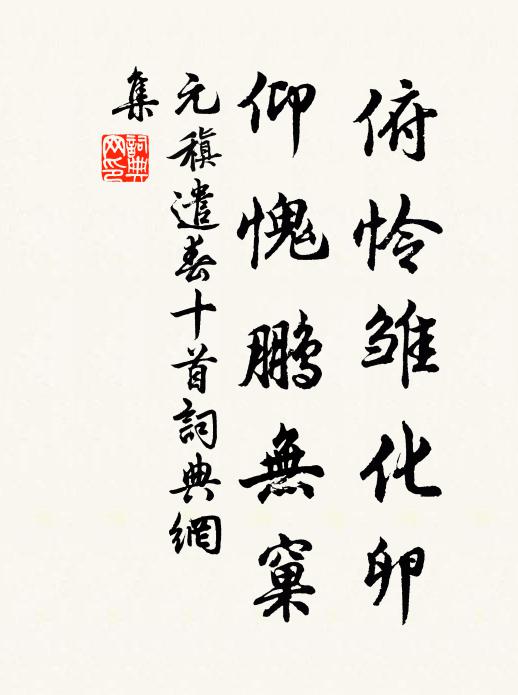 俯怜雏化卵
仰愧鹏無窠
元稹遣春十首詞典網
集
詞典
网印